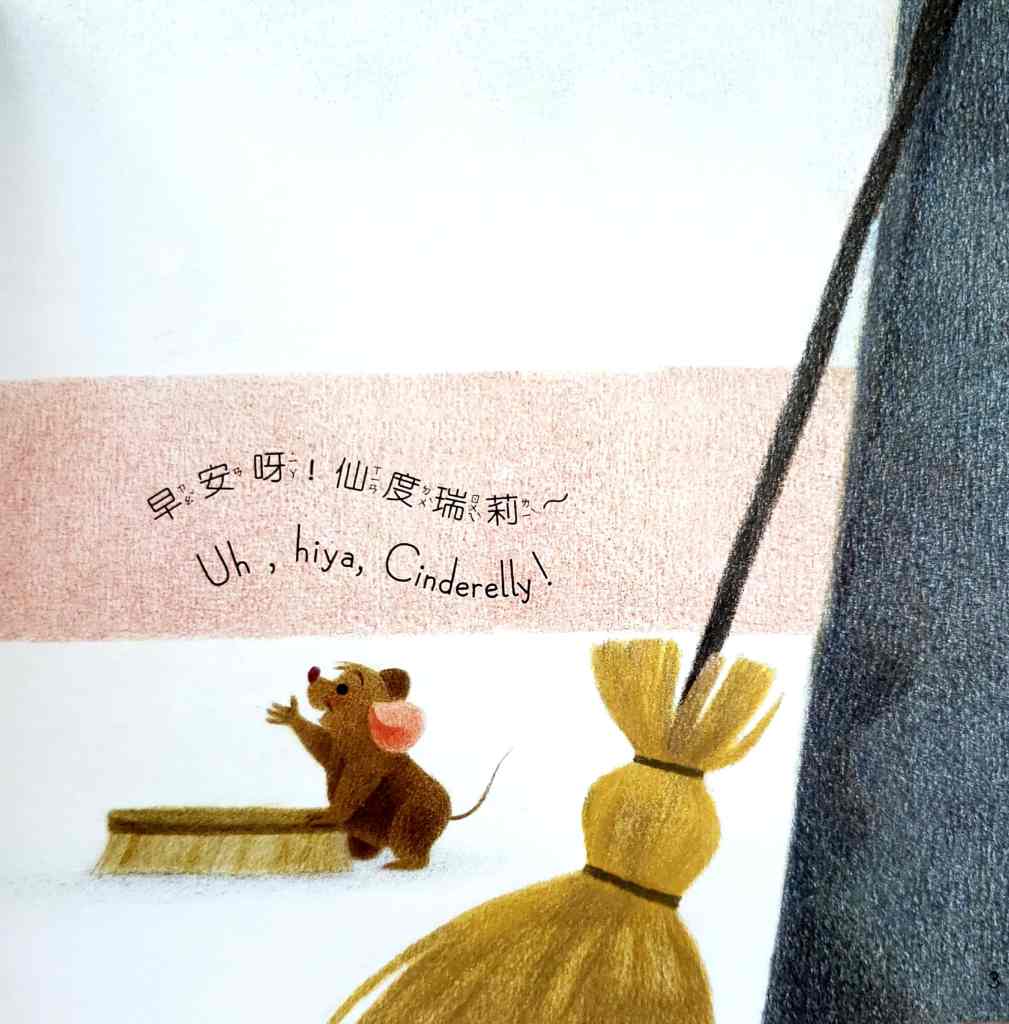 早安呀！仙度瑞莉～
Uh, hiya, Cinderelly!
3